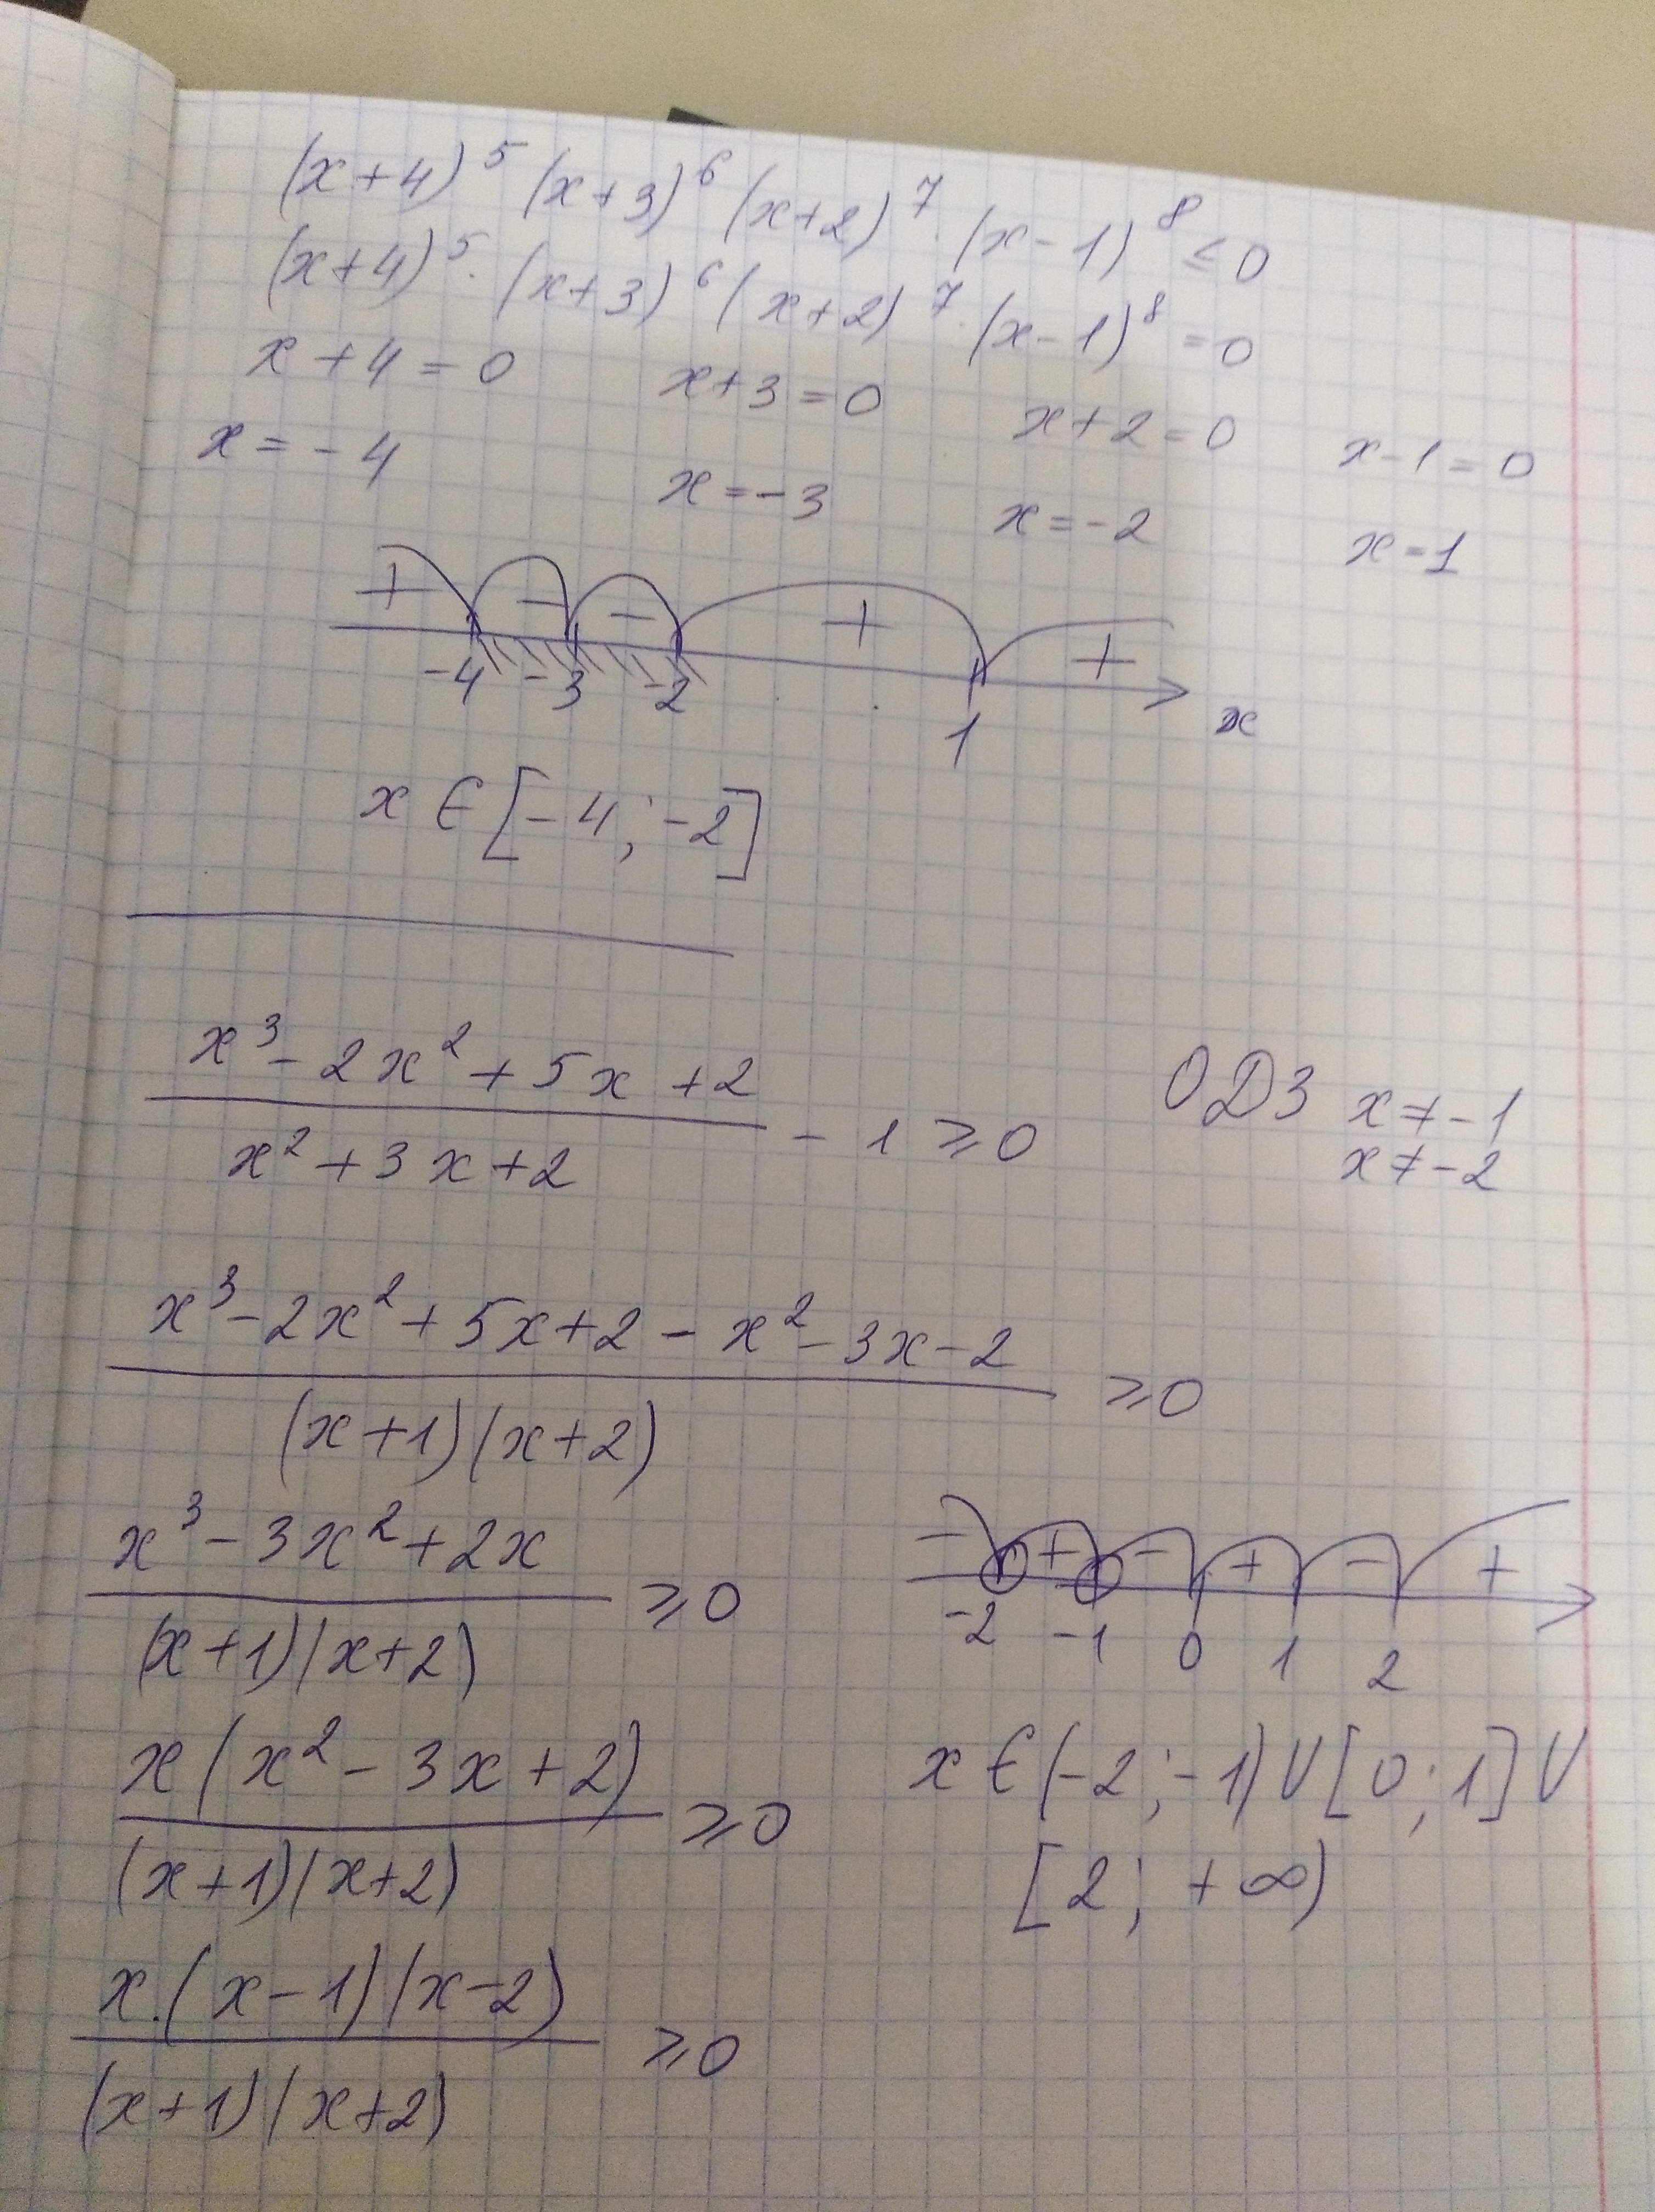 (x+4)^5 (x+3)^6 (x+2)^7 · (x-1)^8 ≤ 0
(x+4)^5 · (x+3)^6 (x+2)^7 · (x-1)^8 = 0
x+4=0 x+3=0 x+2=0 x-1=0
x=-4 x=-3 x=-2 x=1
+ - - + +
-4 -3 -2 1 x
x ∈ [-4; -2]
(x^3 - 2x^2 + 5x + 2)/(x^2 + 3x + 2) - 1 ≥ 0 ОДЗ x ≠ -1
x ≠ -2
(x^3 - 2x^2 + 5x + 2 - x^2 - 3x - 2)/((x+1)(x+2)) ≥ 0
(x^3 - 3x^2 + 2x)/((x+1)(x+2)) ≥ 0
x(x^2 - 3x + 2)/((x+1)(x+2)) ≥ 0
x·(x-1)(x-2)/((x+1)(x+2)) ≥ 0
- + - + - +
-2 -1 0 1 2
x ∈ (-2; -1) ∪ [0; 1] ∪
[2; +∞)